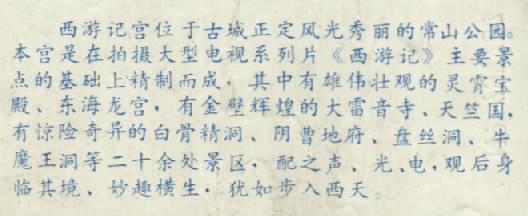 西游记宫位于古城正定风光秀丽的常山公园。
本宫是在拍摄大型电视系列片《西游记》主要景
点的基础上精制而成，其中有雄伟壮观的灵霄宝
殿、东海龙宫，有金壁辉煌的大雷音寺、天竺国，
有惊险奇异的白骨精洞、阴曹地府、盘丝洞、牛
魔王洞等二十余处景区，配之声、光、电，观后身
临其境、妙趣横生，犹如步入西天。